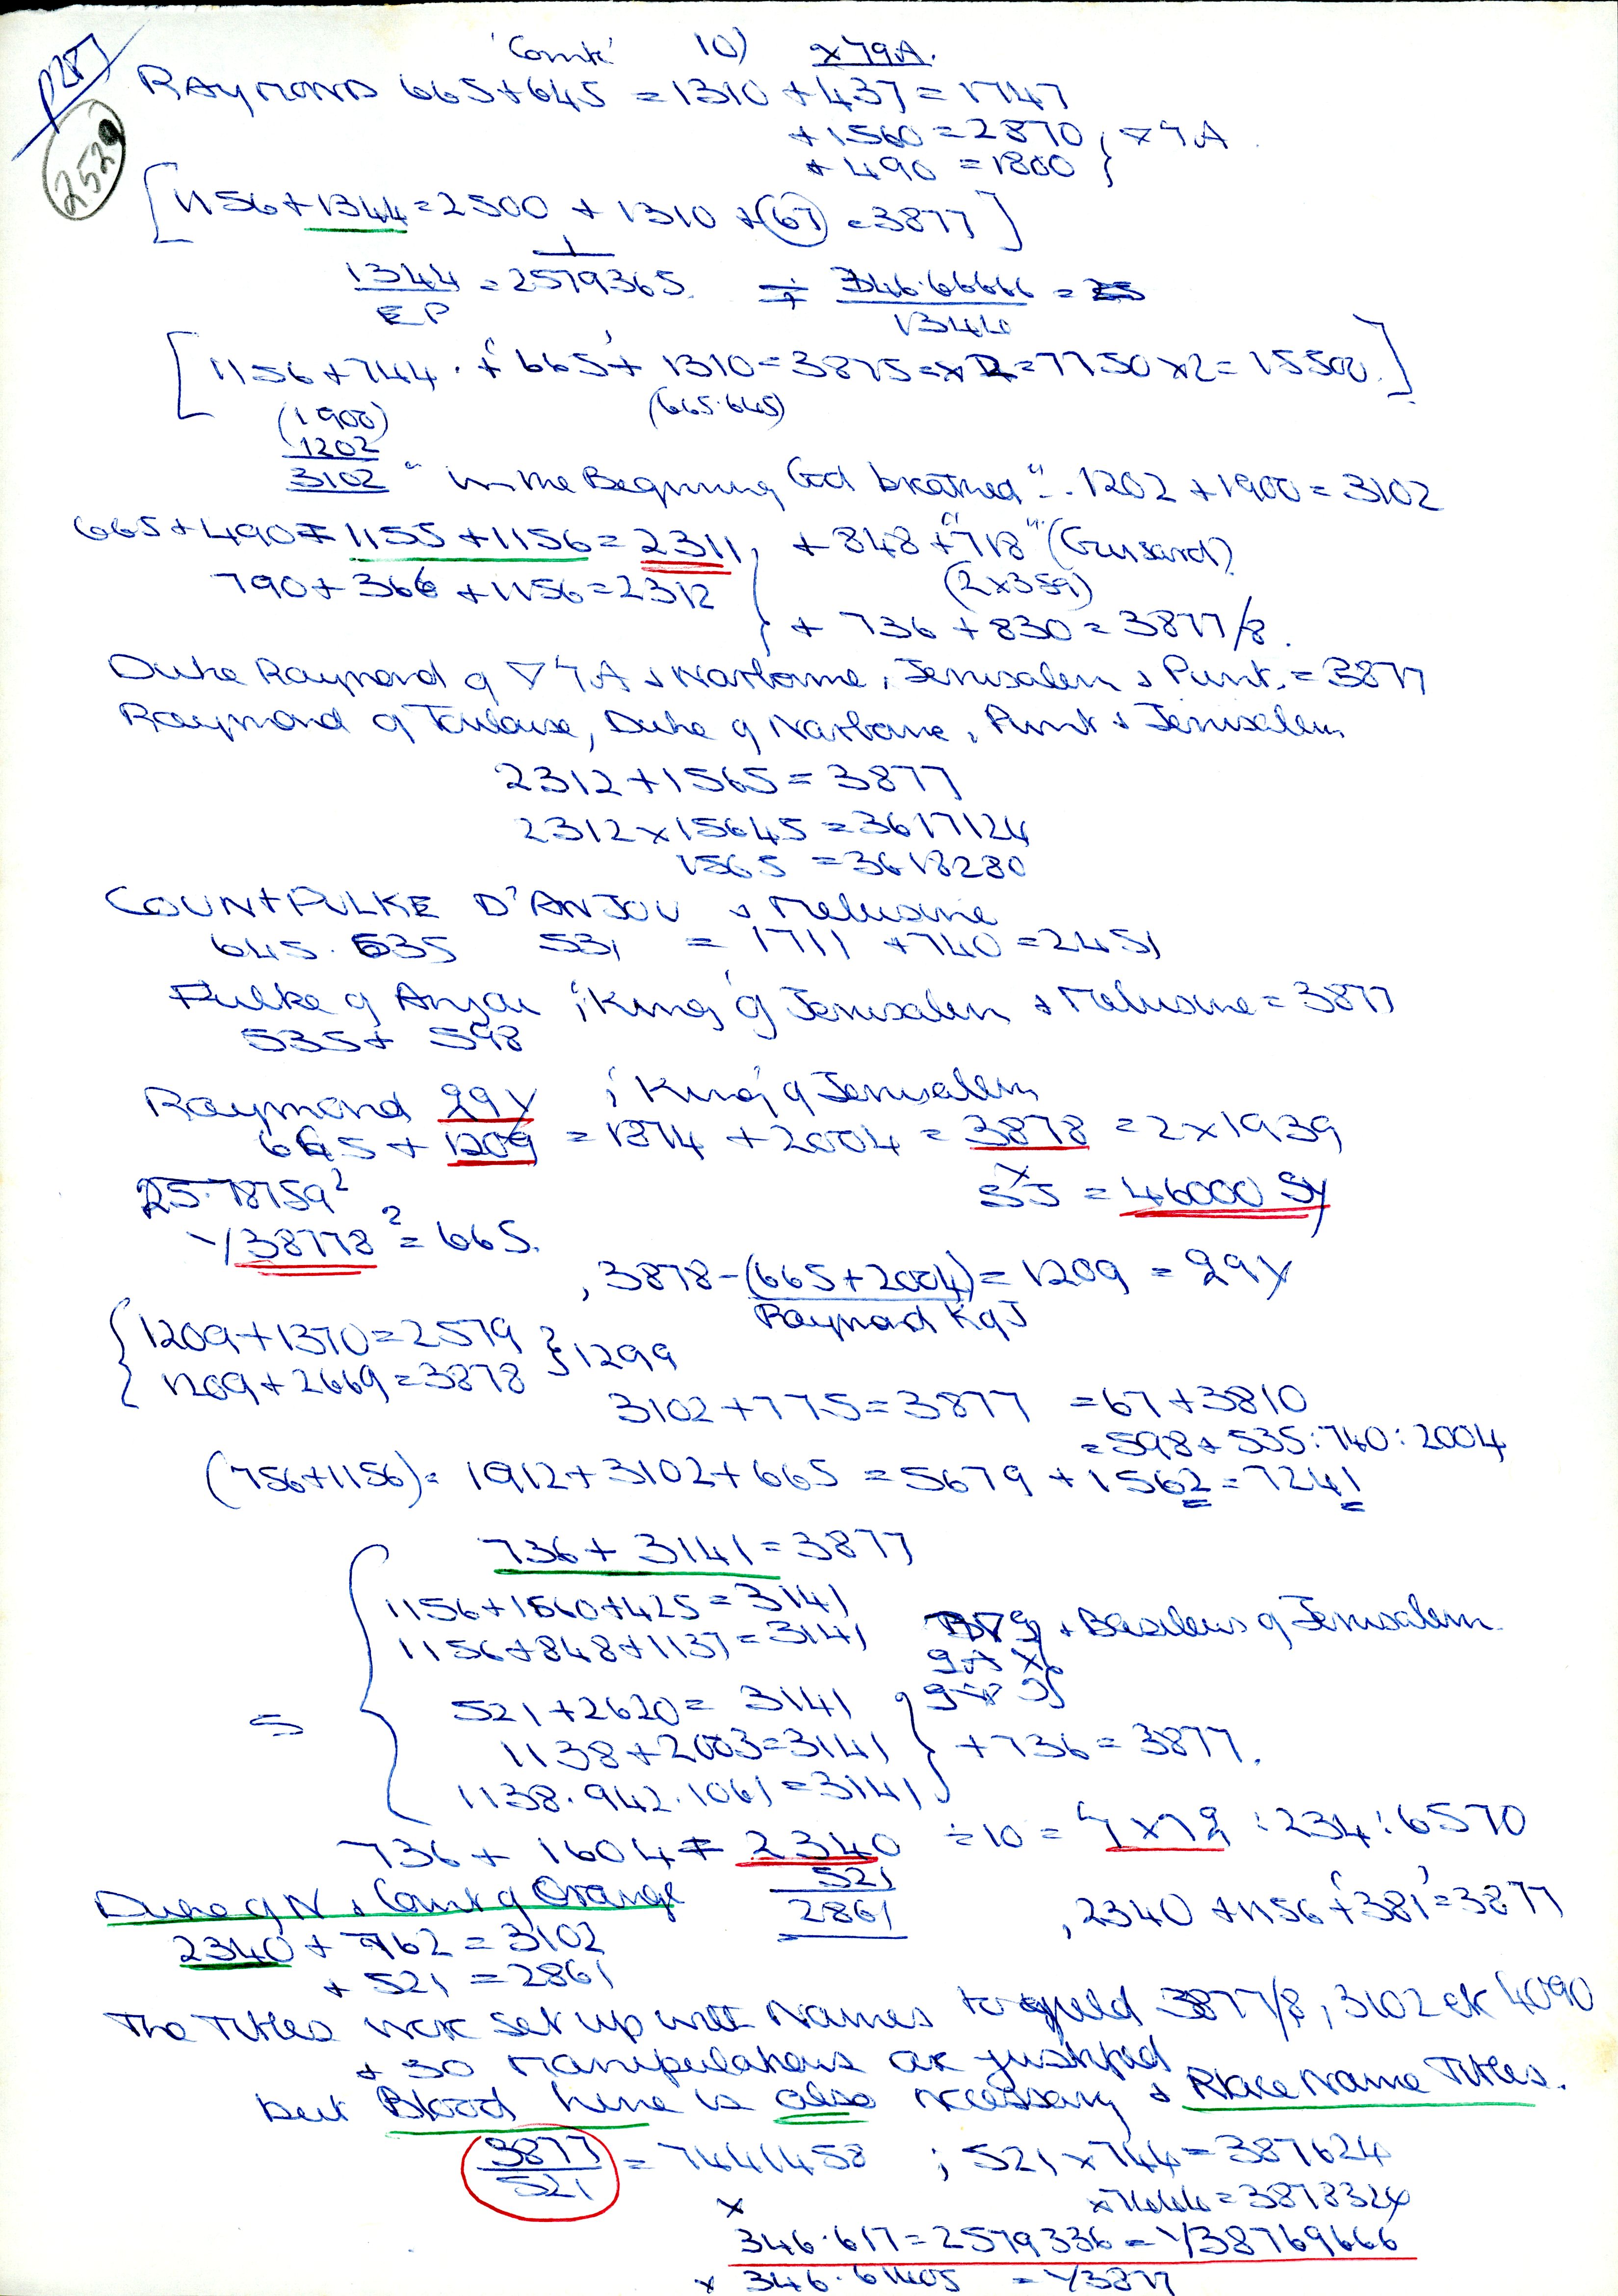 p287
2529
'Comte' 10) x79A.
RAYMOND 665+645 = 1310 + 437 = 1747
+ 1560 = 2870
+ 490 = 1800
[1156+1344=2500 + 1310 + (67) = 3877]
1344 = 2579365. 346.66666 =
EP 13440
[1156+744 + '665'+ 1310=3875 = x 2 = 7750 x2 = 15500.]
(1900) (665.645)
1202
3102 "In the Beginning God breathed". 1202 + 1900 = 3102
665+490 = 1155 + 1156 = 2311 + 848 + "718"
790+366 + 1156=2312 (2x359)
+ 736 + 830 = 3877/8.
Duke Raymond of & Narbonne, Jerusalem & Punt. = 3877
Raymond of Toulouse, Duke of Narbonne, Punt & Jerusalem
2312+1565 = 3877
2312x15645 = 3617124
1565 = 3618280
COUNT FULKE D'ANJOU & Melusine
645. 535 531 = 1711 +740 = 2451
Fulke of Anjou 'King' of Jerusalem & Melusine = 3877
535+ 598
Raymond 'King' of Jerusalem
665 + 1209 = 1874 + 2004 = 3878 = 2x1939
25.78759² = 46000
√38778² = 665.
, 3878-(665+2004) = 1209 =
Raymond K of J
{1209+1370=2579
1209+2669=3878} 1299
3102+775=3877 =67+3810
=598+535:740:2004
(756+1156)= 1912+3102+665 = 5679 + 1562 = 7241
736+ 3141 = 3877
1156+1560+425=3141
1156+848+1137=3141 & Basileus of Jerusalem.
521+2620= 3141
= 1138+2003=3141 } +736 = 3877.
1138.942.1061 = 3141
736+ 1604 = 2340 ÷10 = :234:6570
521
Duke of N & Count of Orange 2861 , 2340 +1156+'381'=3877
2340 + 762 = 3102
+ 521 = 2861
The Titles were set up with Names to yield 3877/8, 3102 etc 4090
+ so manipulations are justified
but Blood line is also necessary & Place Name Titles.
3877 = 7441458 ; 521 x 744 = 387624
521 x x7444 = 3878324
346.617 = 2579336 = √38769666
x 346.61405 = √3877